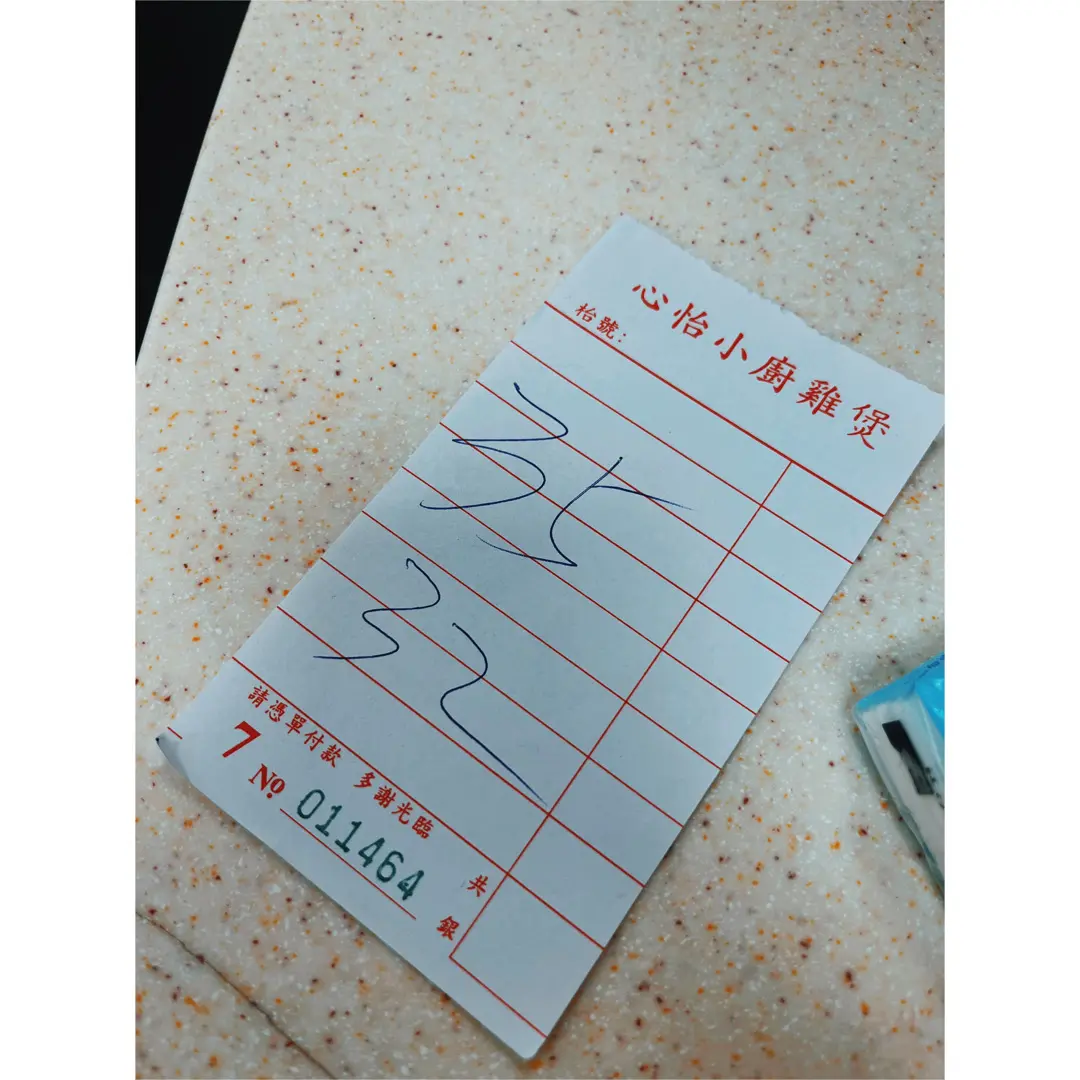 心怡小廚雞煲
枱號:
35
32
請憑單付款 多謝光臨
7 № 011464
共銀